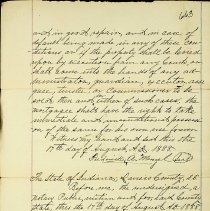 663
and in good repair, and in case of
default being made in any of these con-
ditions or if the property shall be levied
upon by execution from any Court or
shall come into the hands of any ad-
ministrator, guardian, executor, assi-
gnee, trustee or Commissioner to be
sold then and either of such cases the
mortgagee shall have the right to take
immediate and unconditional possess-
ion of the same for his own use forever
Witness my hand and seal this the
17th day of August A.D. 1885
A. Mayol Seal
The State of Indiana, County, SS
Before me, the undersigned, a
Notary Public, within and for said County
State, this the 17th day of August A.D. 1885